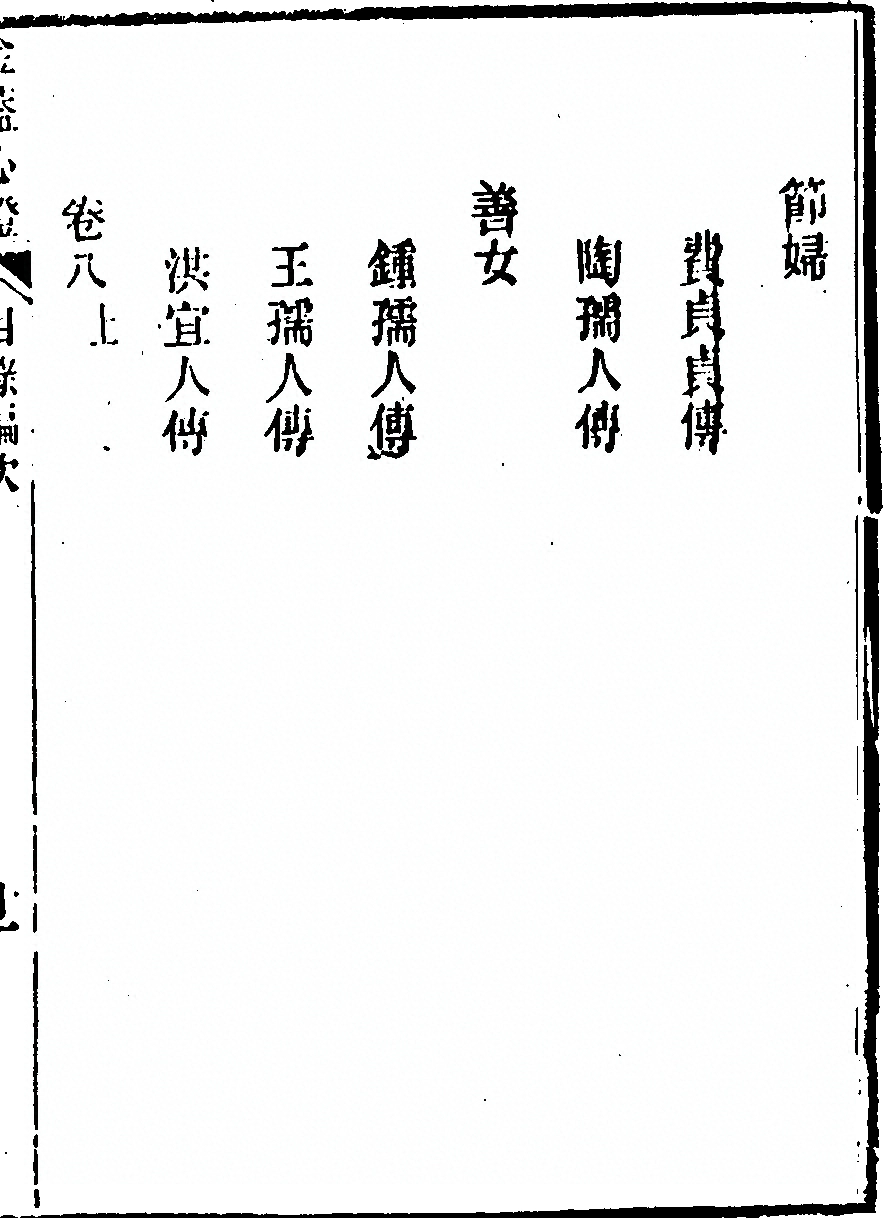 節婦
費貞貞傳
陶孺人傳
善女
鍾孺人傳
王孺人傳
洪宜人傳
卷八上
金蓋心燈 目錄編次